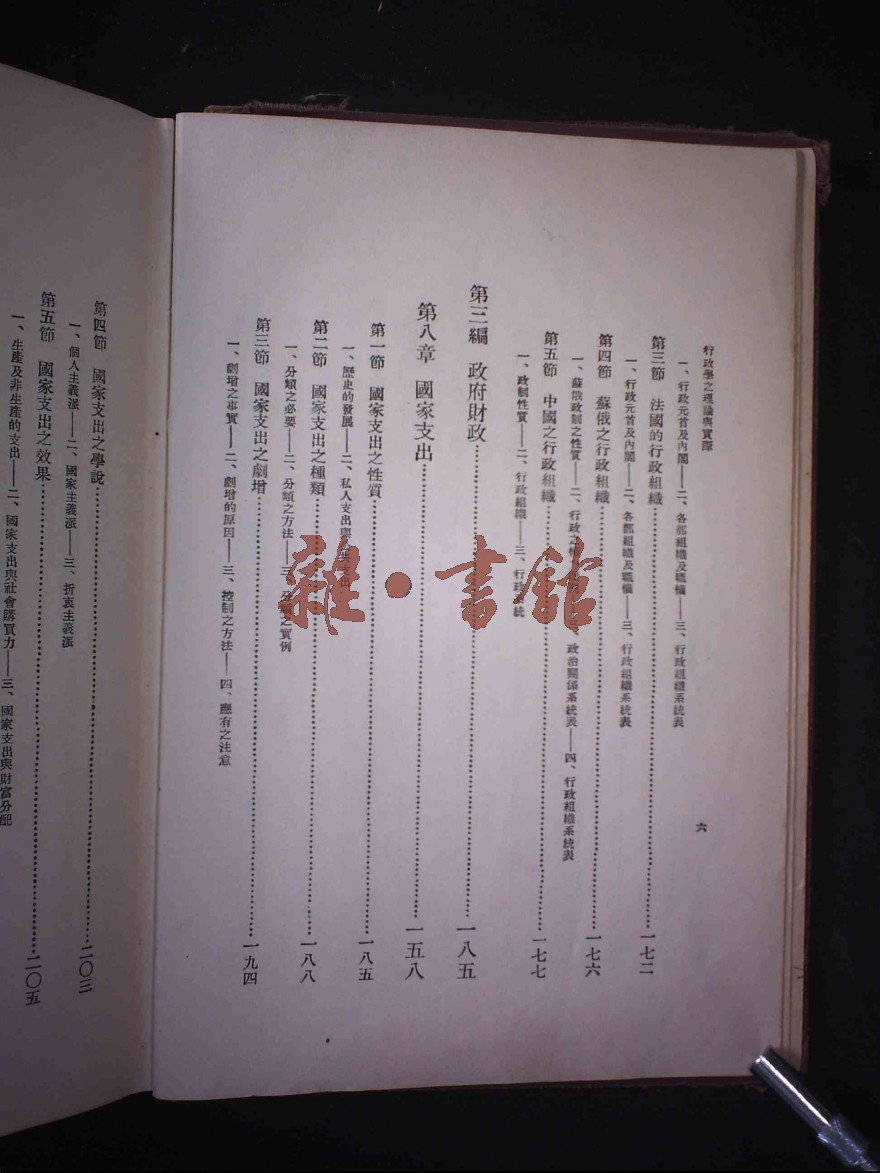 行政學之理論與實際
六
一、行政元首及內閣——二、各部組織及職權——三、行政組織系統表
第三節 法國的行政組織……一七二
一、行政元首及內閣——二、各部組織及職權——三、行政組織系統表
第四節 蘇俄之行政組織……一七六
一、蘇俄政制之性質——二、行政之 、政治關係系統表——四、行政組織系統表
第五節 中國之行政組織……一七七
一、政制性質——二、行政組織——三、行政系統
第三編 政府財政……一八五
第八章 國家支出……一五八
第一節 國家支出之性質……一八五
一、歷史的發展——二、私人支出與 支出
第二節 國家支出之種類……一八八
一、分類之必要——二、分類之方法——三、分類之實例
第三節 國家支出之劇增……一九四
一、劇增之事實——二、劇增的原因——三、控制之方法——四、應有之注意
第四節 國家支出之學說……二〇三
一、個人主義派——二、國家主義派——三、折衷主義派
第五節 國家支出之效果……二〇五
一、生產及非生產的支出——二、國家支出與社會購買力——三、國家支出與財富分配
雜·書館